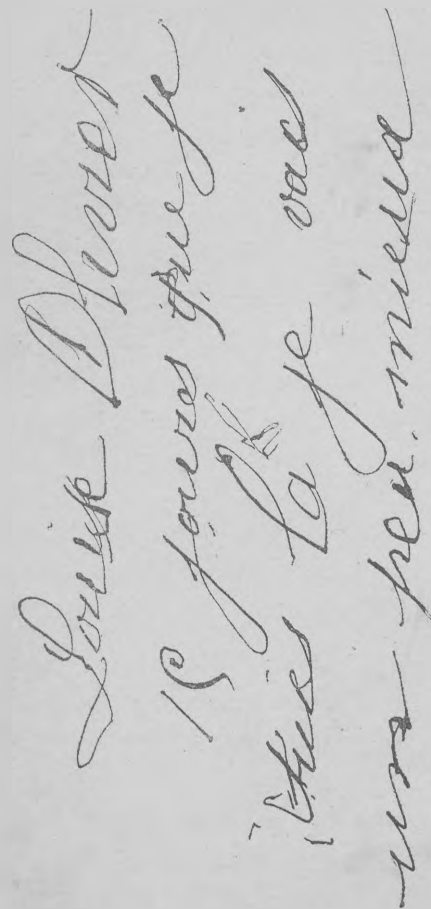 Louise
15 jours que je
suis la je vais
un peu mieux